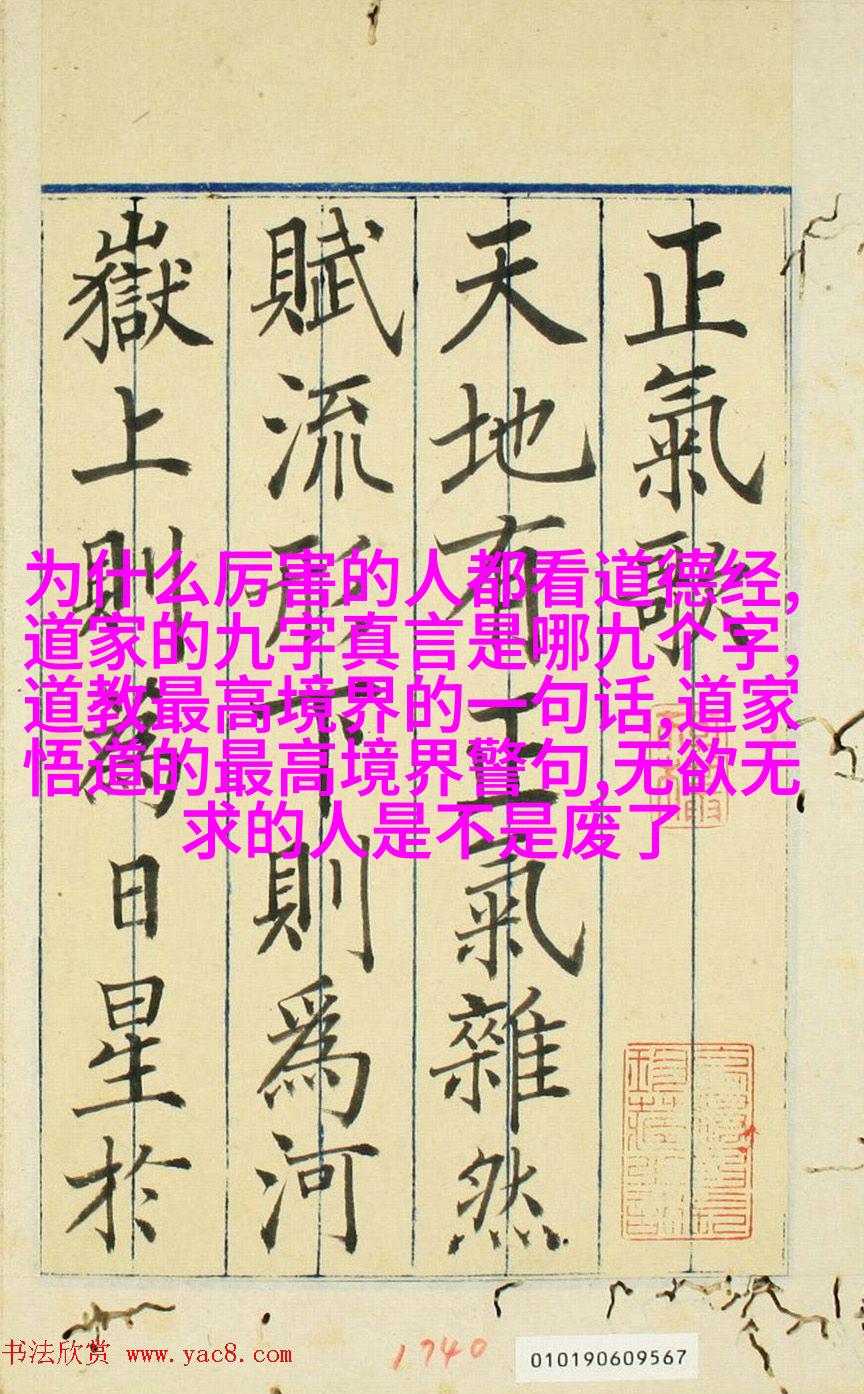 正氣歌
天地有正氣雜然
賦流形下則為河
嶽上則為日星於
为什么厉害的人都看道德经,
道家的九字真言是哪九个字,
道教最高境界的一句话,道家
悟道的最高境界警句,无欲无
求的人是不是废了
书法欣赏 www.yac8.com
1740
010190609567